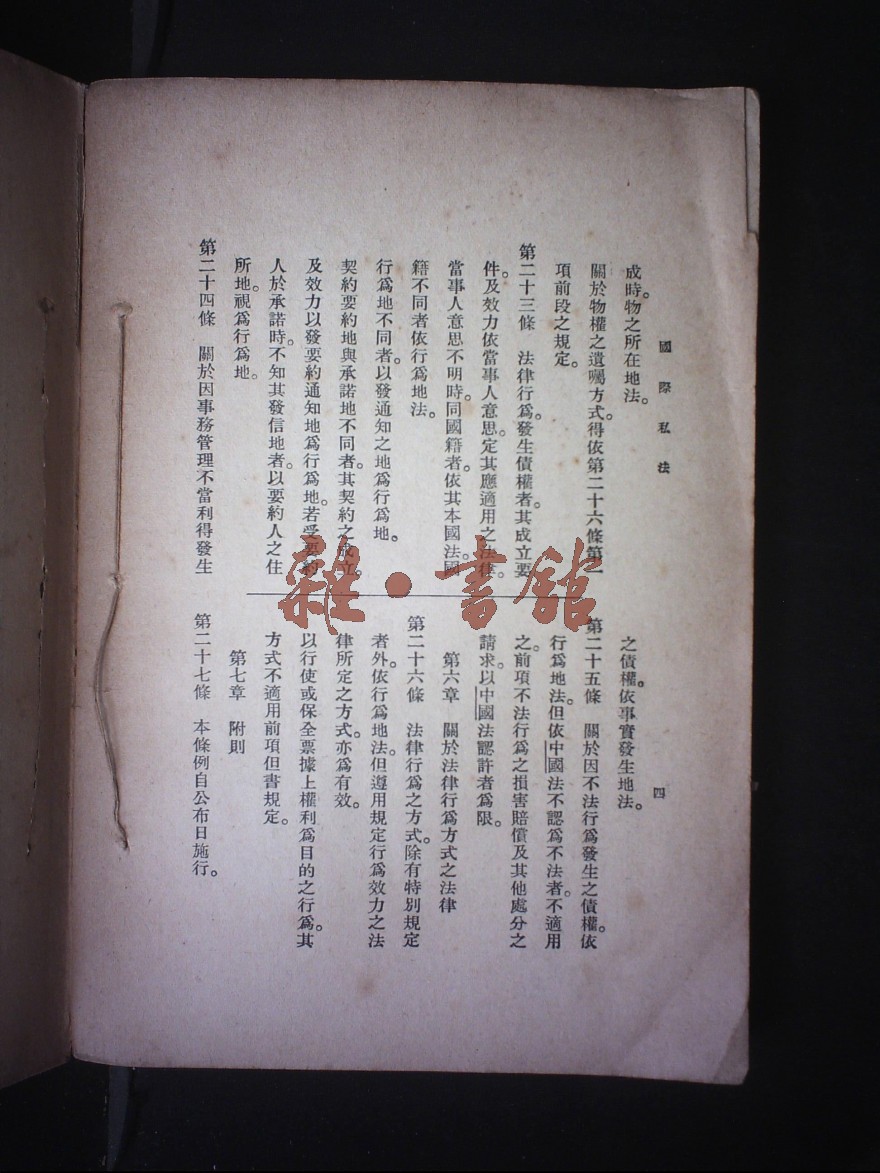 國際私法
四
成時物之所在地法。
關於物權之遺囑方式。得依第二十六條第一
項前段之規定。
第二十三條　法律行爲。發生債權者。其成立要
件。及效力依當事人意思。定其應適用之法律。
當事人意思不明時。同國籍者。依其本國法。國
籍不同者依行爲地法。
行爲地不同者。以發通知之地爲行爲地。
契約要約地與承諾地不同者。其契約之成立。
及效力以發要約通知地爲行爲地。若受要約
人於承諾時。不知其發信地者。以要約人之住
所地。視爲行爲地。
第二十四條　關於因事務管理不當利得發生
之債權。依事實發生地法。
第二十五條　關於因不法行爲發生之債權。依
行爲地法。但依中國法不認爲不法者。不適用
之。前項不法行爲之損害賠償及其他處分之
請求。以中國法認許者爲限。
第六章　關於法律行爲方式之法律
第二十六條　法律行爲之方式。除有特別規定
者外。依行爲地法。但遵用規定行爲效力之法
律所定之方式。亦爲有效。
以行使或保全票據上權利爲目的之行爲。其
方式不適用前項但書規定。
第七章　附則
第二十七條　本條例自公布日施行。
雜·書館